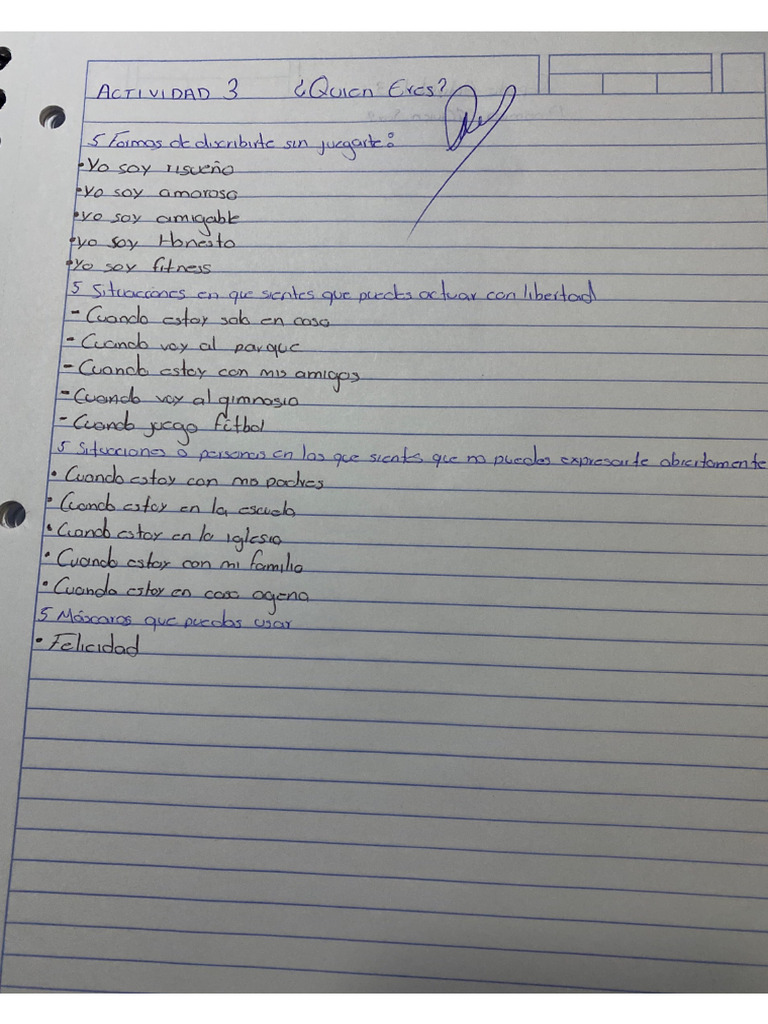 ACTIVIDAD 3 ¿Quien Eres?
5 Formas de discribirte sin juegarte:
• Yo soy risueño
• Yo soy amoroso
• Yo soy amigable
• Yo soy Honesto
• Yo soy fitness
5 Situaciones en que sientes que puedes actuar con libertad
- Cuando estoy solo en casa
- Cuando voy al parque
- Cuando estoy con mis amigos
- Cuando voy al gimnasio
- Cuando juego fútbol
5 Situaciones o personas en las que sientes que no puedes expresarte abiertamente
• Cuando estoy con mis padres
• Cuando estoy en la escuela
• Cuando estoy en la iglesia
• Cuando estoy con mi familia
• Cuando estoy en casa agena
5 Máscaras que puedas usar
• Felicidad